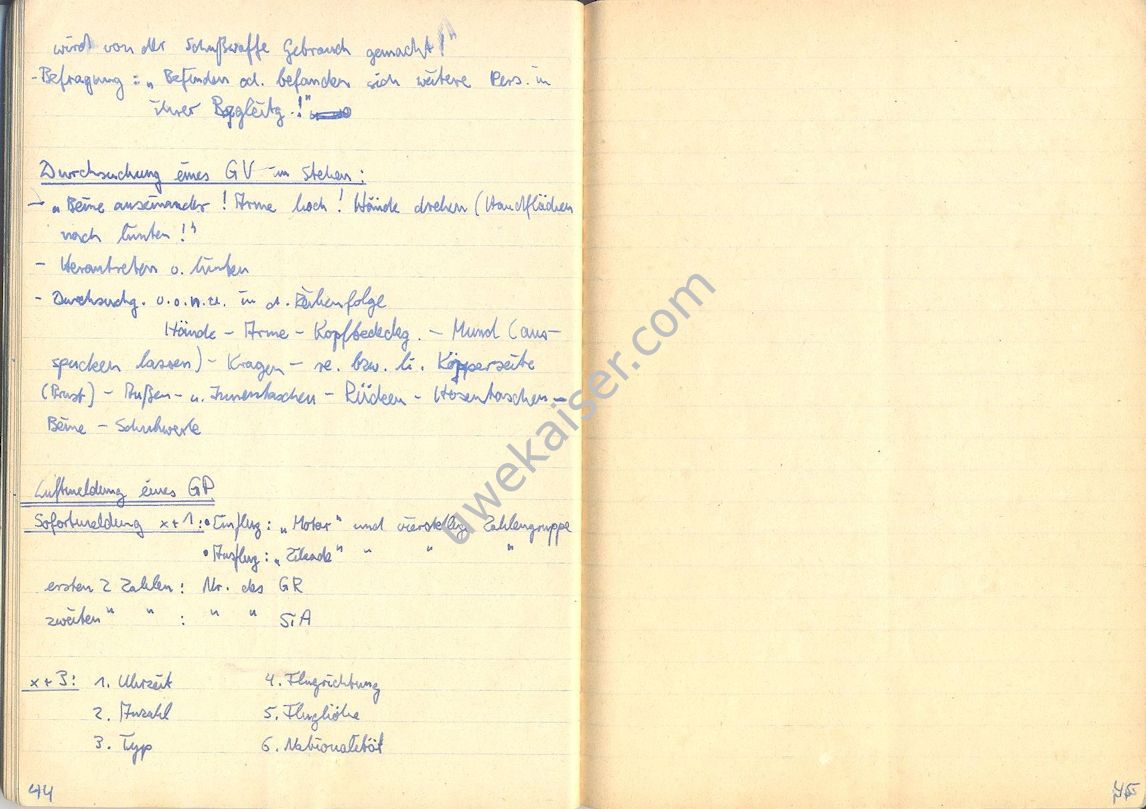 wird von der Schußwaffe Gebrauch gemacht!"
- Befragung: „Befinden od. befanden sich weitere Pers. in
ihrer Begleitg.!"
Durchsuchung eines GV im Stehen:
- „Beine auseinander! Arme hoch! Hände drehen (Handflächen
nach hinten!"
- Herantreten v. hinten
- Durchsuchg. v.o.n.u. in d. Reihenfolge
Hände - Arme - Kopfbedeckg. - Mund (aus-
spucken lassen) - Kragen - re. bzw. li. Köpperseite
(Brust) - Außen- u. Innentaschen - Rücken - Hosentaschen -
Beine - Schuhwerk
Luftmeldung eines GP
Sofortmeldung x+1: • Einflug: „Motor" und vierstellig Zahlengruppe
• Ausflug: „Zikade" " " "
ersten 2 Zahlen: Nr. des GR
zweiten " " : " " SiA
x+3: 1. Uhrzeit 4. Flugrichtung
2. Anzahl 5. Flughöhe
3. Typ 6. Nationalität
44
45
uwekaiser.com